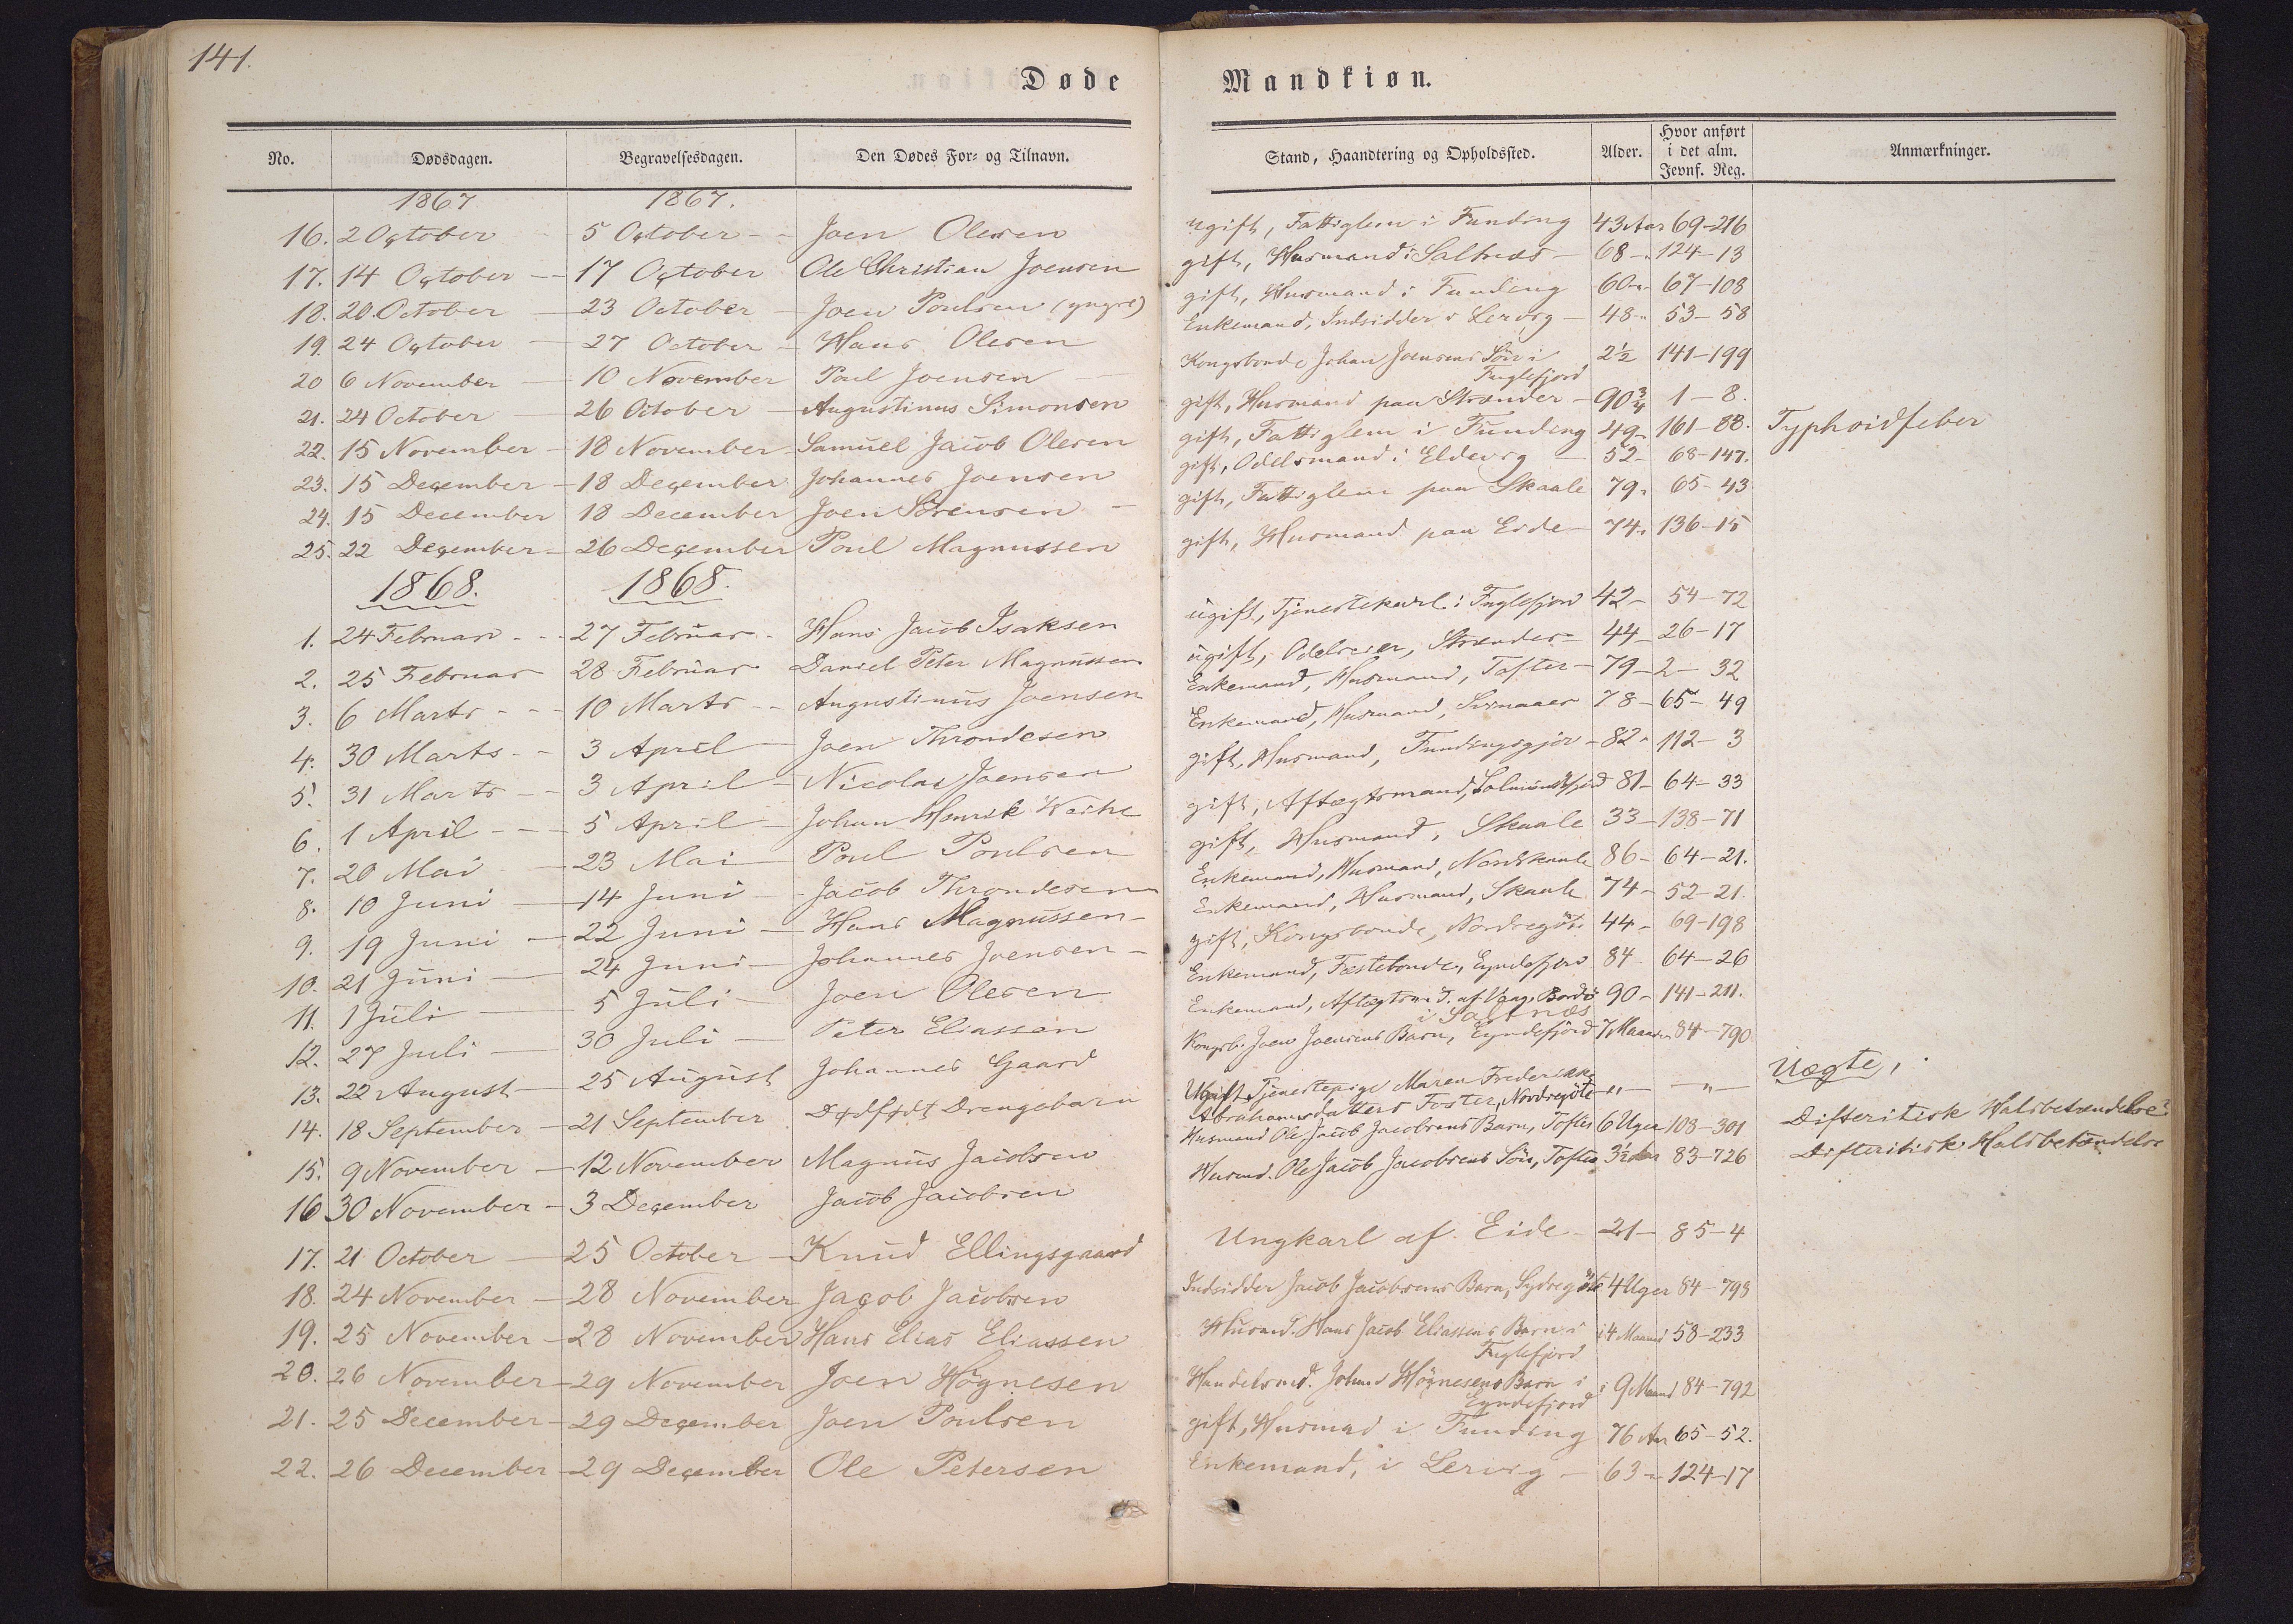 141.
Døde Mandkiøn.
No. Dødsdagen. Begravelsesdagen. Den Dødes For- og Tilnavn. Stand, Haandtering og Opholdssted. Alder. Hvor anført i det alm. Jevnf. Reg. Anmærkninger.
1867 1867.
16. 2 October 5 October Joen Olesen ugift, Fattiglem i Funding 43 Aar 69-216
17. 14 October 17 October Ole Christian Joensen gift, Husmand i Saltnæs 68 124-13
18. 20. October 23 October Joen Poulsen (yngre) gift, Husmand i Funding 60 67-108
19. 24 October 27 October Hans Olesen Enkemand, Indsidder i Lervig 48 53-58
20 6 November 10 November Poul Joensen Kongsbonde Johan Joensens Sön i Fuglefjord 2½ 141-199
21. 24 October 26 October Augustinus Simonsen gift, Husmand paa Strænder 90¾ 1-8.
22. 15 November 18 November Samuel Jacob Olesen gift, Fattiglem i Funding 49 161-88. Typhoidfeber
23. 15 December 18 December Johannes Joensen gift, Odelsmand i Eldevig 52 68-147.
24. 15 December 18 December Joen Sörensen gift, Fattiglem paa Skaale 79 65-43
25. 22 December 26 December Poul Magnussen gift, Husmand paa Eide 74 136-15
1868. 1868.
1. 24 Februar 27 Februar Hans Jacob Isaksen ugift, Tjenestekarl i Fuglefjord 42 54-72
2. 25 Februar 28 Februar Daniel Peter Magnussen ugift, Odelseier, Strænder 44 26-17
3. 6 Marts 10 Marts Augustinus Joensen Enkemand, Husmand, Tofter 79 2-32
4. 30 Marts 3 April Joen Throndesen Enkemand, Husmand, 78 65-49
5. 31 Marts 3 April Nicolai Joensen gift, Husmand, Fundingsgjov 82 112-3
6. 1 April 5 April Johan Henrik Weihe gift, Aftægtsmand, 81 64-33
7. 20 Mai 23 Mai Poul Poulsen gift, Husmand, Skaale 33 138-71
8. 10 Juni 14 Juni Jacob Throndesen Enkemand, Husmand, Nordskaale 86 64-21.
9. 19 Juni 22 Juni Hans Magnussen Enkemand, Husmand, Skaale 74 52-21.
10. 21 Juni 24 Juni Johannes Joensen gift, Kongsbonde, Nordregöte 44 69-198
11. 1 Juli 5 Juli Joen Olesen Enkemand, Fæstebonde, Eyndefjord 84 64-26
12. 27 Juli 30 Juli Peter Eliassen Enkemand, i Saltnæs 90 141-211.
13. 22 August 25 August Johannes Gaard Kongsb. Joen Joensens Barn, Eyndefjord 7 Maaneder 84-790
14. 18 September 21 September Dødfødt Drengebarn Ugift Tjenestepige Maren Frederikke Abrahamsdatters Foster, Nordregöte " " Uægte,
15. 9 November 12 November Magnus Jacobsen Husmand Ole Jacob Jacobsens Barn, Tofter 6 Uger 108-301 Difteritisk Halsbetændelse?
16 30 November 3 December Jacob Jacobsen Husmd. Ole Jacob Jacobsens Sön, Tofter 3½ Aar 83-726 Difteritisk Halsbetændelse
17. 21 October 25 October Knud Ellingsgaard Ungkarl af Eide 21 85-4
18. 24 November 28 November Jacob Jacobsen Indsidder Jacob Jacobsens Barn, Sydregöte 4 Uger 84-793
19. 25 November 28 November Hans Elias Eliassen Husmd. Hans Jacob Eliassens Barn i Fuglefjord 4 Maaned 58-233
20. 26 November 29 November Joen Högnesen Handelsmd. Johan Högnesens Barn i Eyndefjord 9 Maaned 84-792
21. 25 December 29 December Joen Poulsen gift, Husmad i Funding 76 Aar 65-52.
22. 26 December 29 December Ole Petersen Enkemand, i Lervig 63 124-17